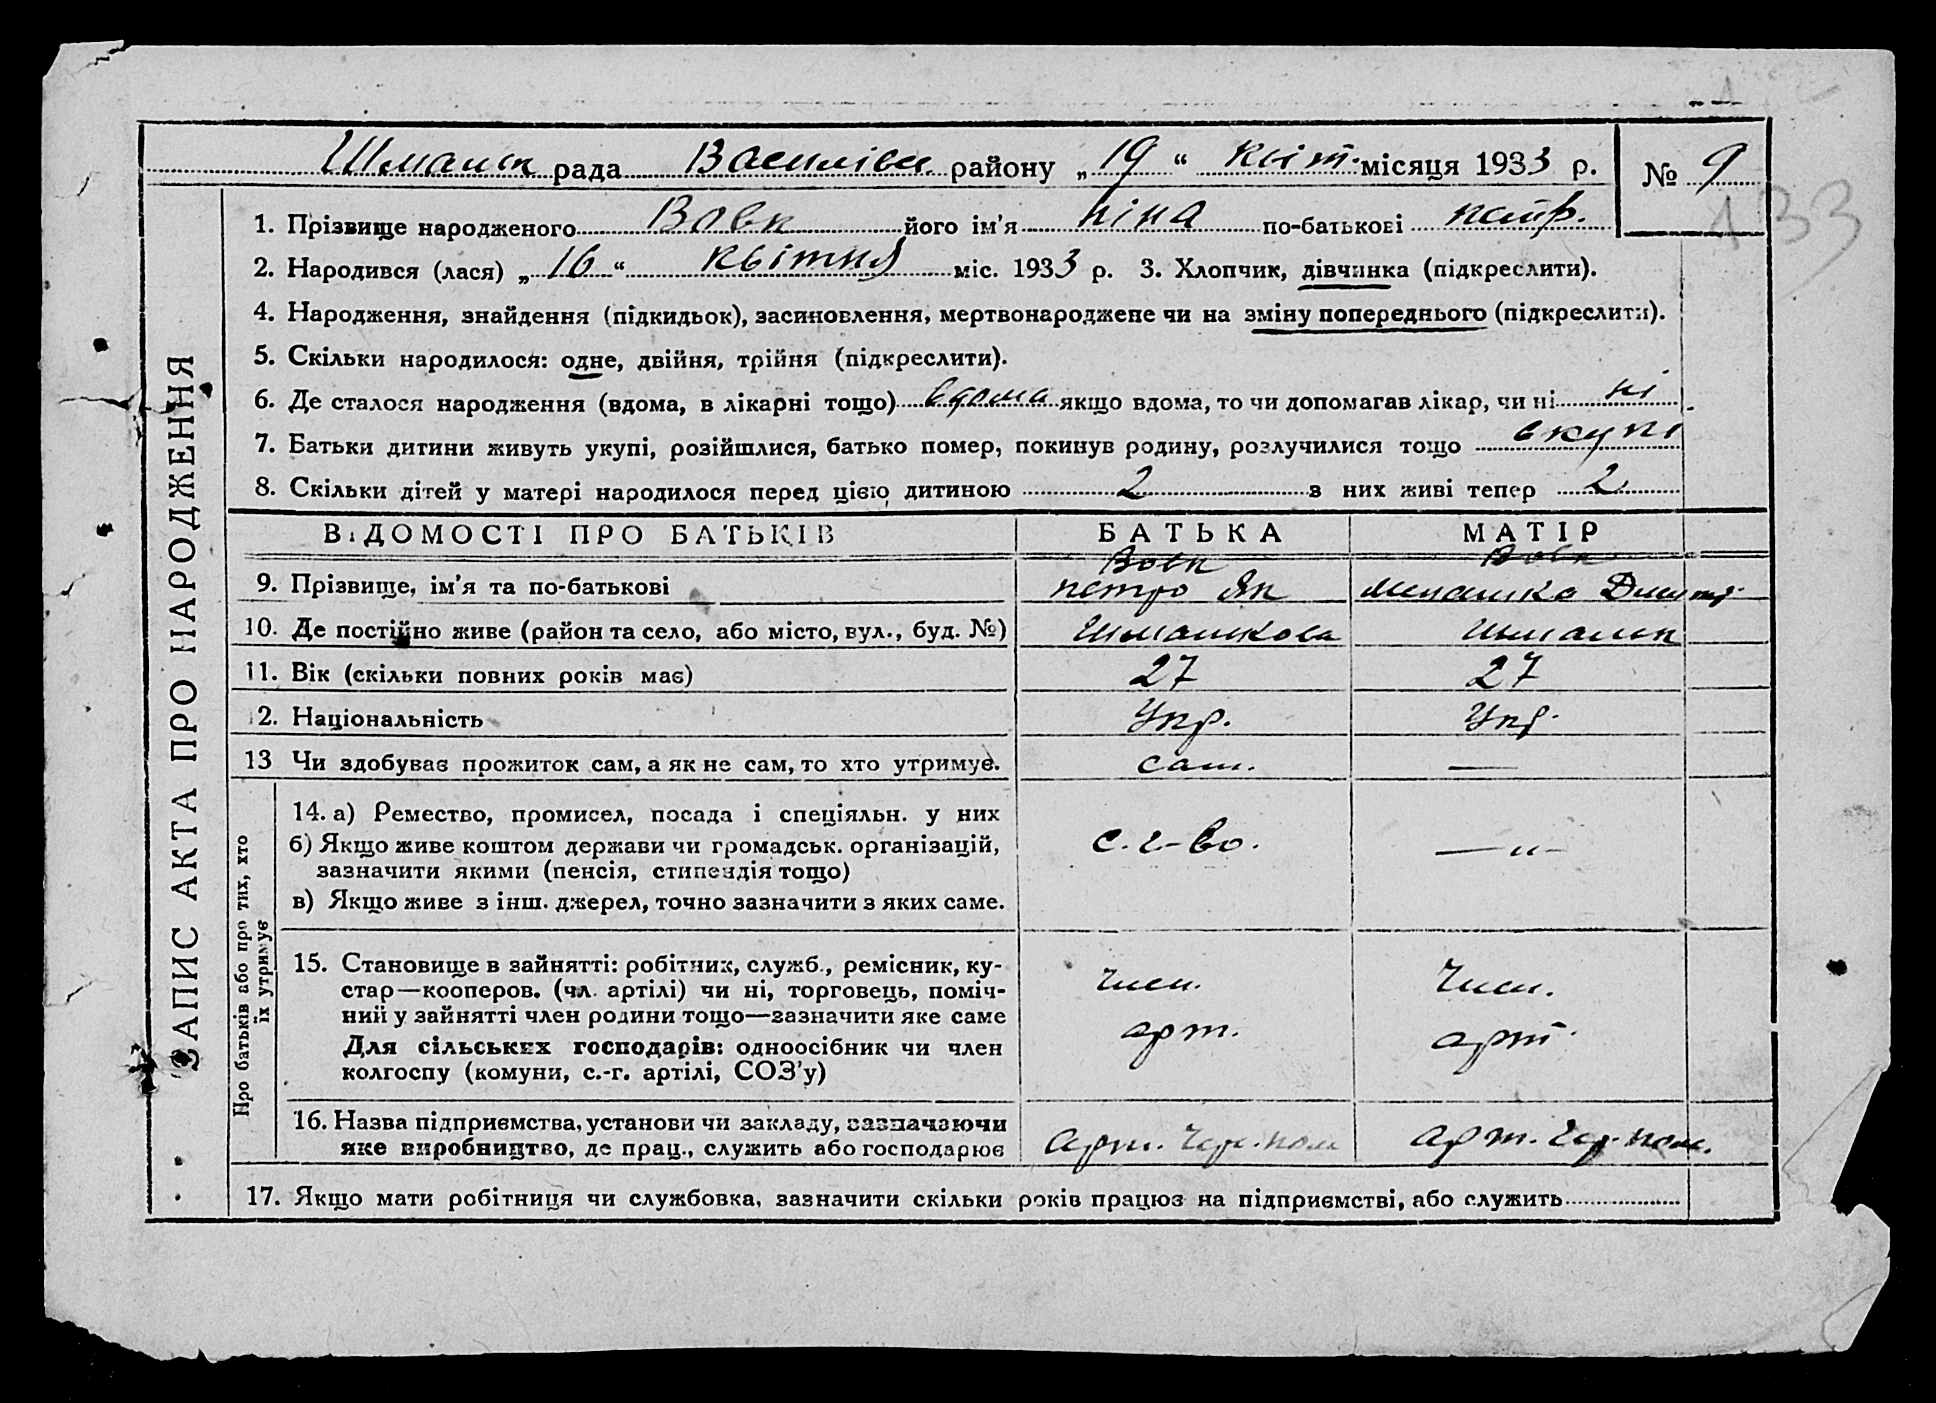 Шмальк рада Василівск. району „19“ квіт. місяця 1933 р. № 9
133
1. Прізвище народженого Вовк його ім'я ніна по-батькові петр.
2. Народився (лася) „16“ квітня міс. 1933 р. 3. Хлопчик, дівчинка (підкреслити).
4. Народження, знайдення (підкидьок), засиновлення, мертвонароджене чи на зміну попереднього (підкреслити).
5. Скільки народилося: одне, двійня, трійня (підкреслити).
6. Де сталося народження (вдома, в лікарні тощо) вдома якщо вдома, то чи допомагав лікар, чи ні ні
7. Батьки дитини живуть укупі, розійшлися, батько помер, покинув родину, розлучилися тощо вкупі
8. Скільки дітей у матері народилося перед цією дитиною 2 з них живі тепер 2
ЗАПИС АКТА ПРО НАРОДЖЕННЯ
ВІДОМОСТІ ПРО БАТЬКІВ БАТЬКА МАТІР
Вовк Вовк
9. Прізвище, ім'я та по-батькові петро Як Мелашка Дмитр.
10. Де постійно живе (район та село, або місто, вул., буд. №)
11. Вік (скільки повних років має) 27 27
12. Національність Укр. Укр.
13 Чи здобуває прожиток сам, а як не сам, то хто утримує. сам. —
Про батьків або про тих, хто
їх утримує
14. а) Ремество, промисел, посада і спеціяльн. у них
б) Якщо живе коштом держави чи громадськ. організацій, с.г-во. —„—
зазначити якими (пенсія, стипендія тощо)
в) Якщо живе з інш. джерел, точно зазначити з яких саме.
15. Становище в зайнятті: робітник, служб., ремісник, ку-
стар—кооперов. (чл. артілі) чи ні, торговець, поміч- член. член.
ний у зайнятті член родини тощо—зазначити яке саме арт. арт.
Для сільських господарів: одноосібник чи член
колгоспу (комуни, с.-г. артілі, СОЗ'у)
16. Назва підприємства, установи чи закладу, зазначаючи
яке виробництво, де прац., служить або господарює арт. Чер. пол арт. Чер. пол.
17. Якщо мати робітниця чи службовка, зазначити скільки років працює на підприємстві, або служить